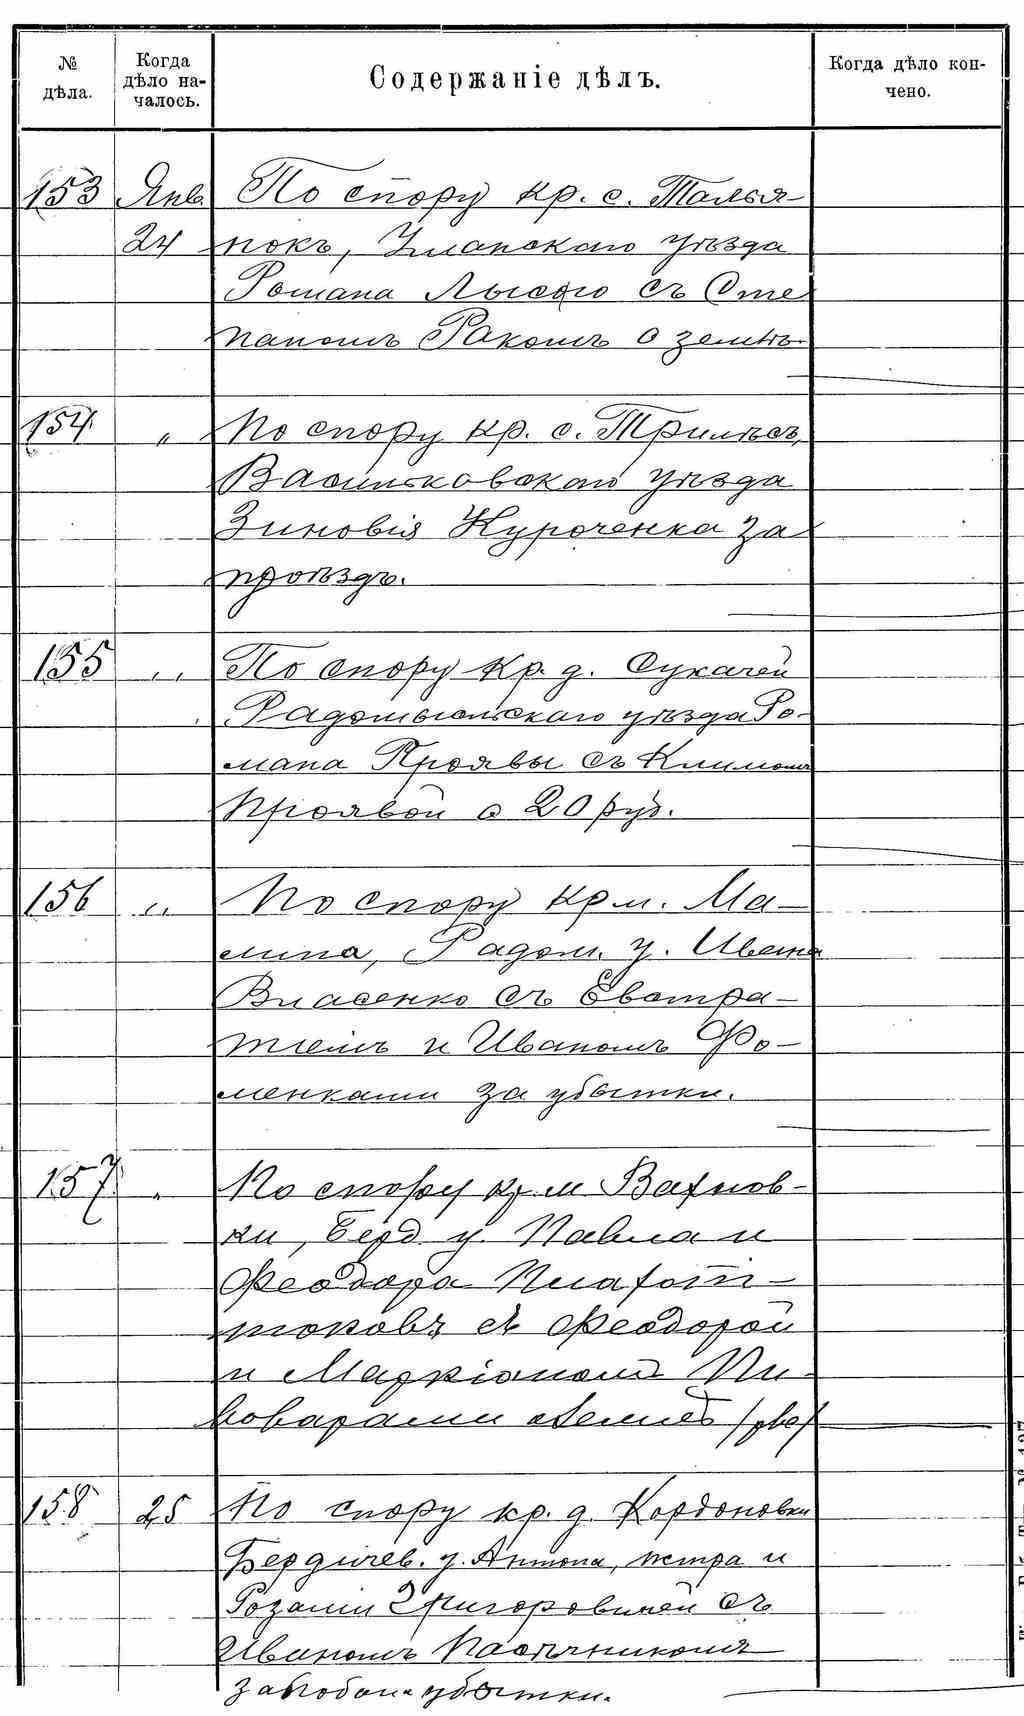 № дѣла.
Когда дѣло на-чалось.
Содержаніе дѣлъ.
Когда дѣло кон-чено.
153 Янв. По спору кр. с. Талья-
24 нокъ, Уманскаго уѣзда
Романа Лысого съ Сте
паномъ Ракомъ о землѣ.
154 " По спору кр. с. Трилѣсъ,
Васильковскаго уѣзда
Зиновія Куроченка за
проѣздъ.
155 " По спору кр. д. Сукачей
Радомысльскаго уѣзда Ро-
мана Проявы съ Климомъ
Проявой о 20 руб.
156 " По спору кр. м. Ма-
лина, Радом. у. Ивана
Власенко съ Евстра-
тіемъ и Иваномъ Фо-
менками за убытки.
157 " По спору кр. м. Вахнов-
ки, Берд. у. Павла и
Феодора
съ Феодорой
и Маркіаномъ Пи-
воварами о землѣ
158 25 По спору кр. д. Кордоновки
Бердичев. у. Антона, Петра и
Розаліи Григоровичей съ
Иваномъ Пасѣчникомъ
за побои и убытки.